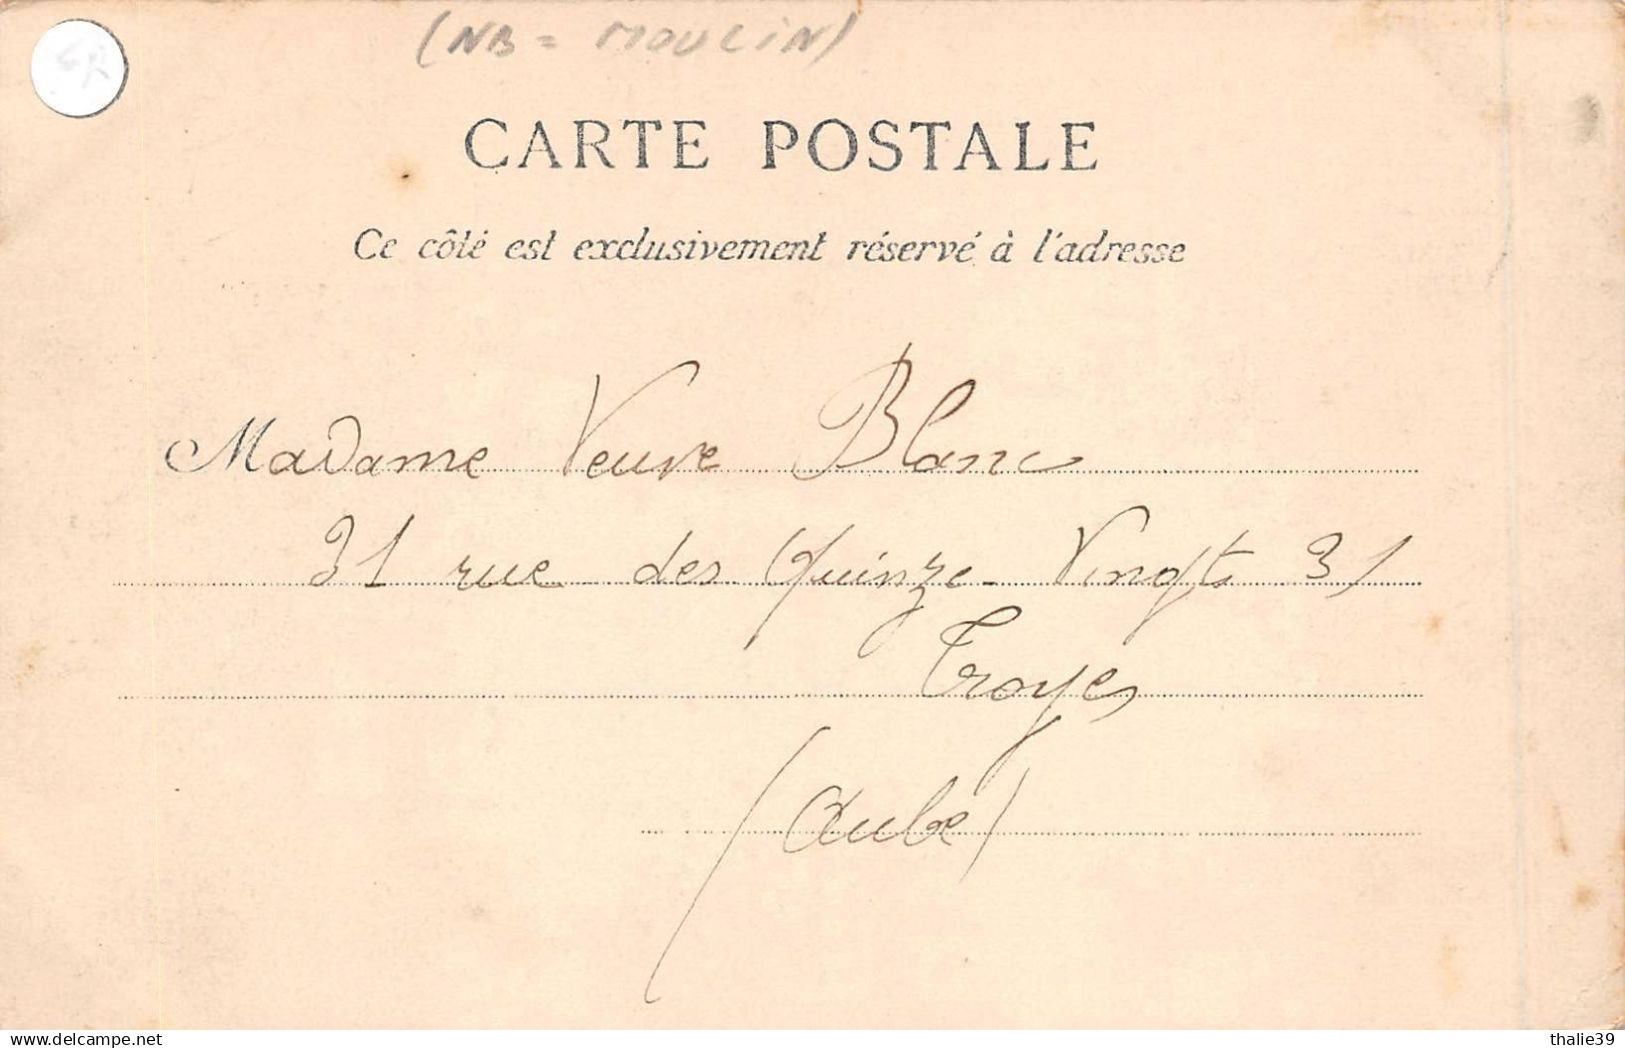 (NB = MOULIN)
CARTE POSTALE
Ce côté est exclusivement réservé à l'adresse
Madame Veuve Blanc
31 rue des Quinze-Vingts 31
Troyes
(Aube)
delcampe.net
thalie39